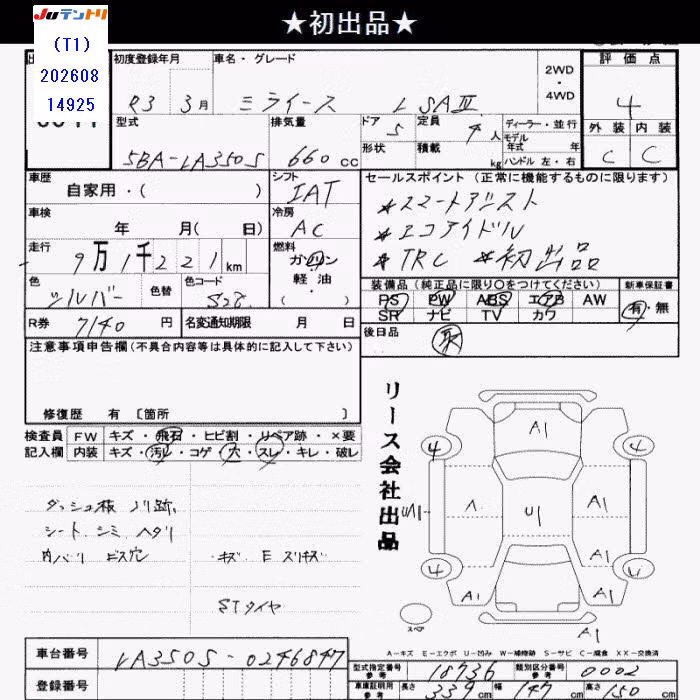 ★初出品★
JUテントリ
(T1)
202608
14925
初度登録年月
R3 3月
車名・グレード
ミライース L SAⅢ
2WD・4WD
評価点
4
外装 内装
C C
型式
5BA-LA350S
排気量
660cc
ドア 5
形状
定員 4人
積載 kg
ディーラー・並行
モデル年式 年式
ハンドル 左・右
車歴
自家用・( )
シフト
IAT
車検
年 月( 日)
冷房
AC
走行
9万1千221km
燃料
ガソリン
軽油・
( )
色
シルバー
色替
色コード
S28
R券 7140円
名変通知期限 月 日
セールスポイント (正常に機能するものに限ります)
*スマートアシスト
*エコアイドル
*TRC *初出品
装備品 (純正品に限り○をつけてください)
PS PW ABS エアB AW
SR ナビ TV カワ
新車保証書
有・無
後日品
取
注意事項申告欄(不具合内容等は具体的に記入して下さい)
修復歴 有 〔箇所 〕
検査員記入欄
FW キズ・飛石・ヒビ割・リペア跡・×要
内装 キズ・汚レ・コゲ・穴・スレ・キレ・破レ
ダッシュ板 ノリ跡
シート シミ ヘタリ
内バリ ビス穴
キズ E スリキズ
STタイヤ
リース会社出品
A1
4 4
A U1 A1
A1
4
A1 A1
A1
スペア
A－キズ E－エクボ U－凹み W－補修跡 S－サビ C－腐食 XX－交換済
車台番号 LA350S-0246847
登録番号
型式指定番号 参考 18736
類別区分番号 参考 0002
車庫証明用 参考 長さ 339cm 幅 147cm 高さ 150cm